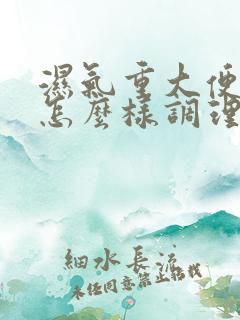 濕氣重大便
怎麼樣調理
細水長流
未经同意禁止搭我